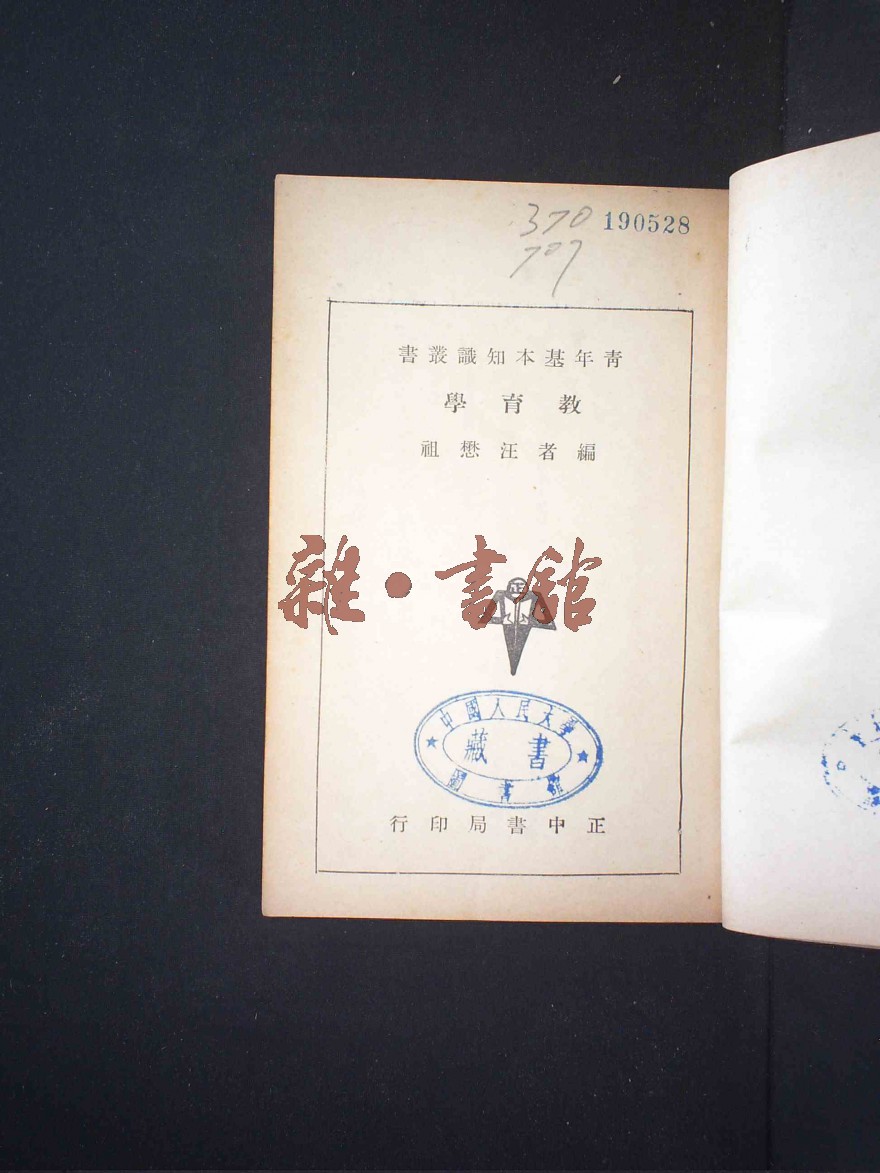 370 190528
707
青年基本知識叢書
教育學
編者汪懋祖
雜·書館
正
中國人民大學
藏書
圖書館
正中書局印行